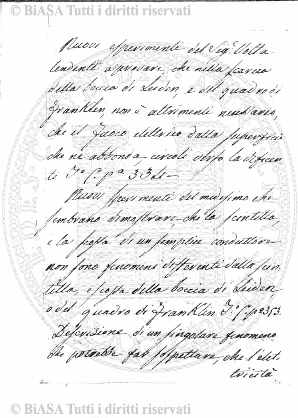 © BiASA Tutti i diritti riservati
Nuovi esperimenti del Sig. Volta
tendenti a provare, che nella scarica
della boccia di Leiden, e del quadro di
Franklin, non è altrimenti necessario,
che il fuoco elettrico dalla superficie
che ne abbonda, circoli verso la deficen
te T. C. pª 334
Nuovi sperimenti del medesimo che
sembrano dimostrare, che la scintilla,
e la scossa di un semplice conduttore
non sono fenomeni differenti dalla scin
tilla, e scossa della boccia di Leiden
o del quadro di Franklin T. C. pª 353.
Descrizione di un singolare fenomeno
che potrebbe far sospettare, che l'elet
tricità
© BiASA Tutti i diritti riservati